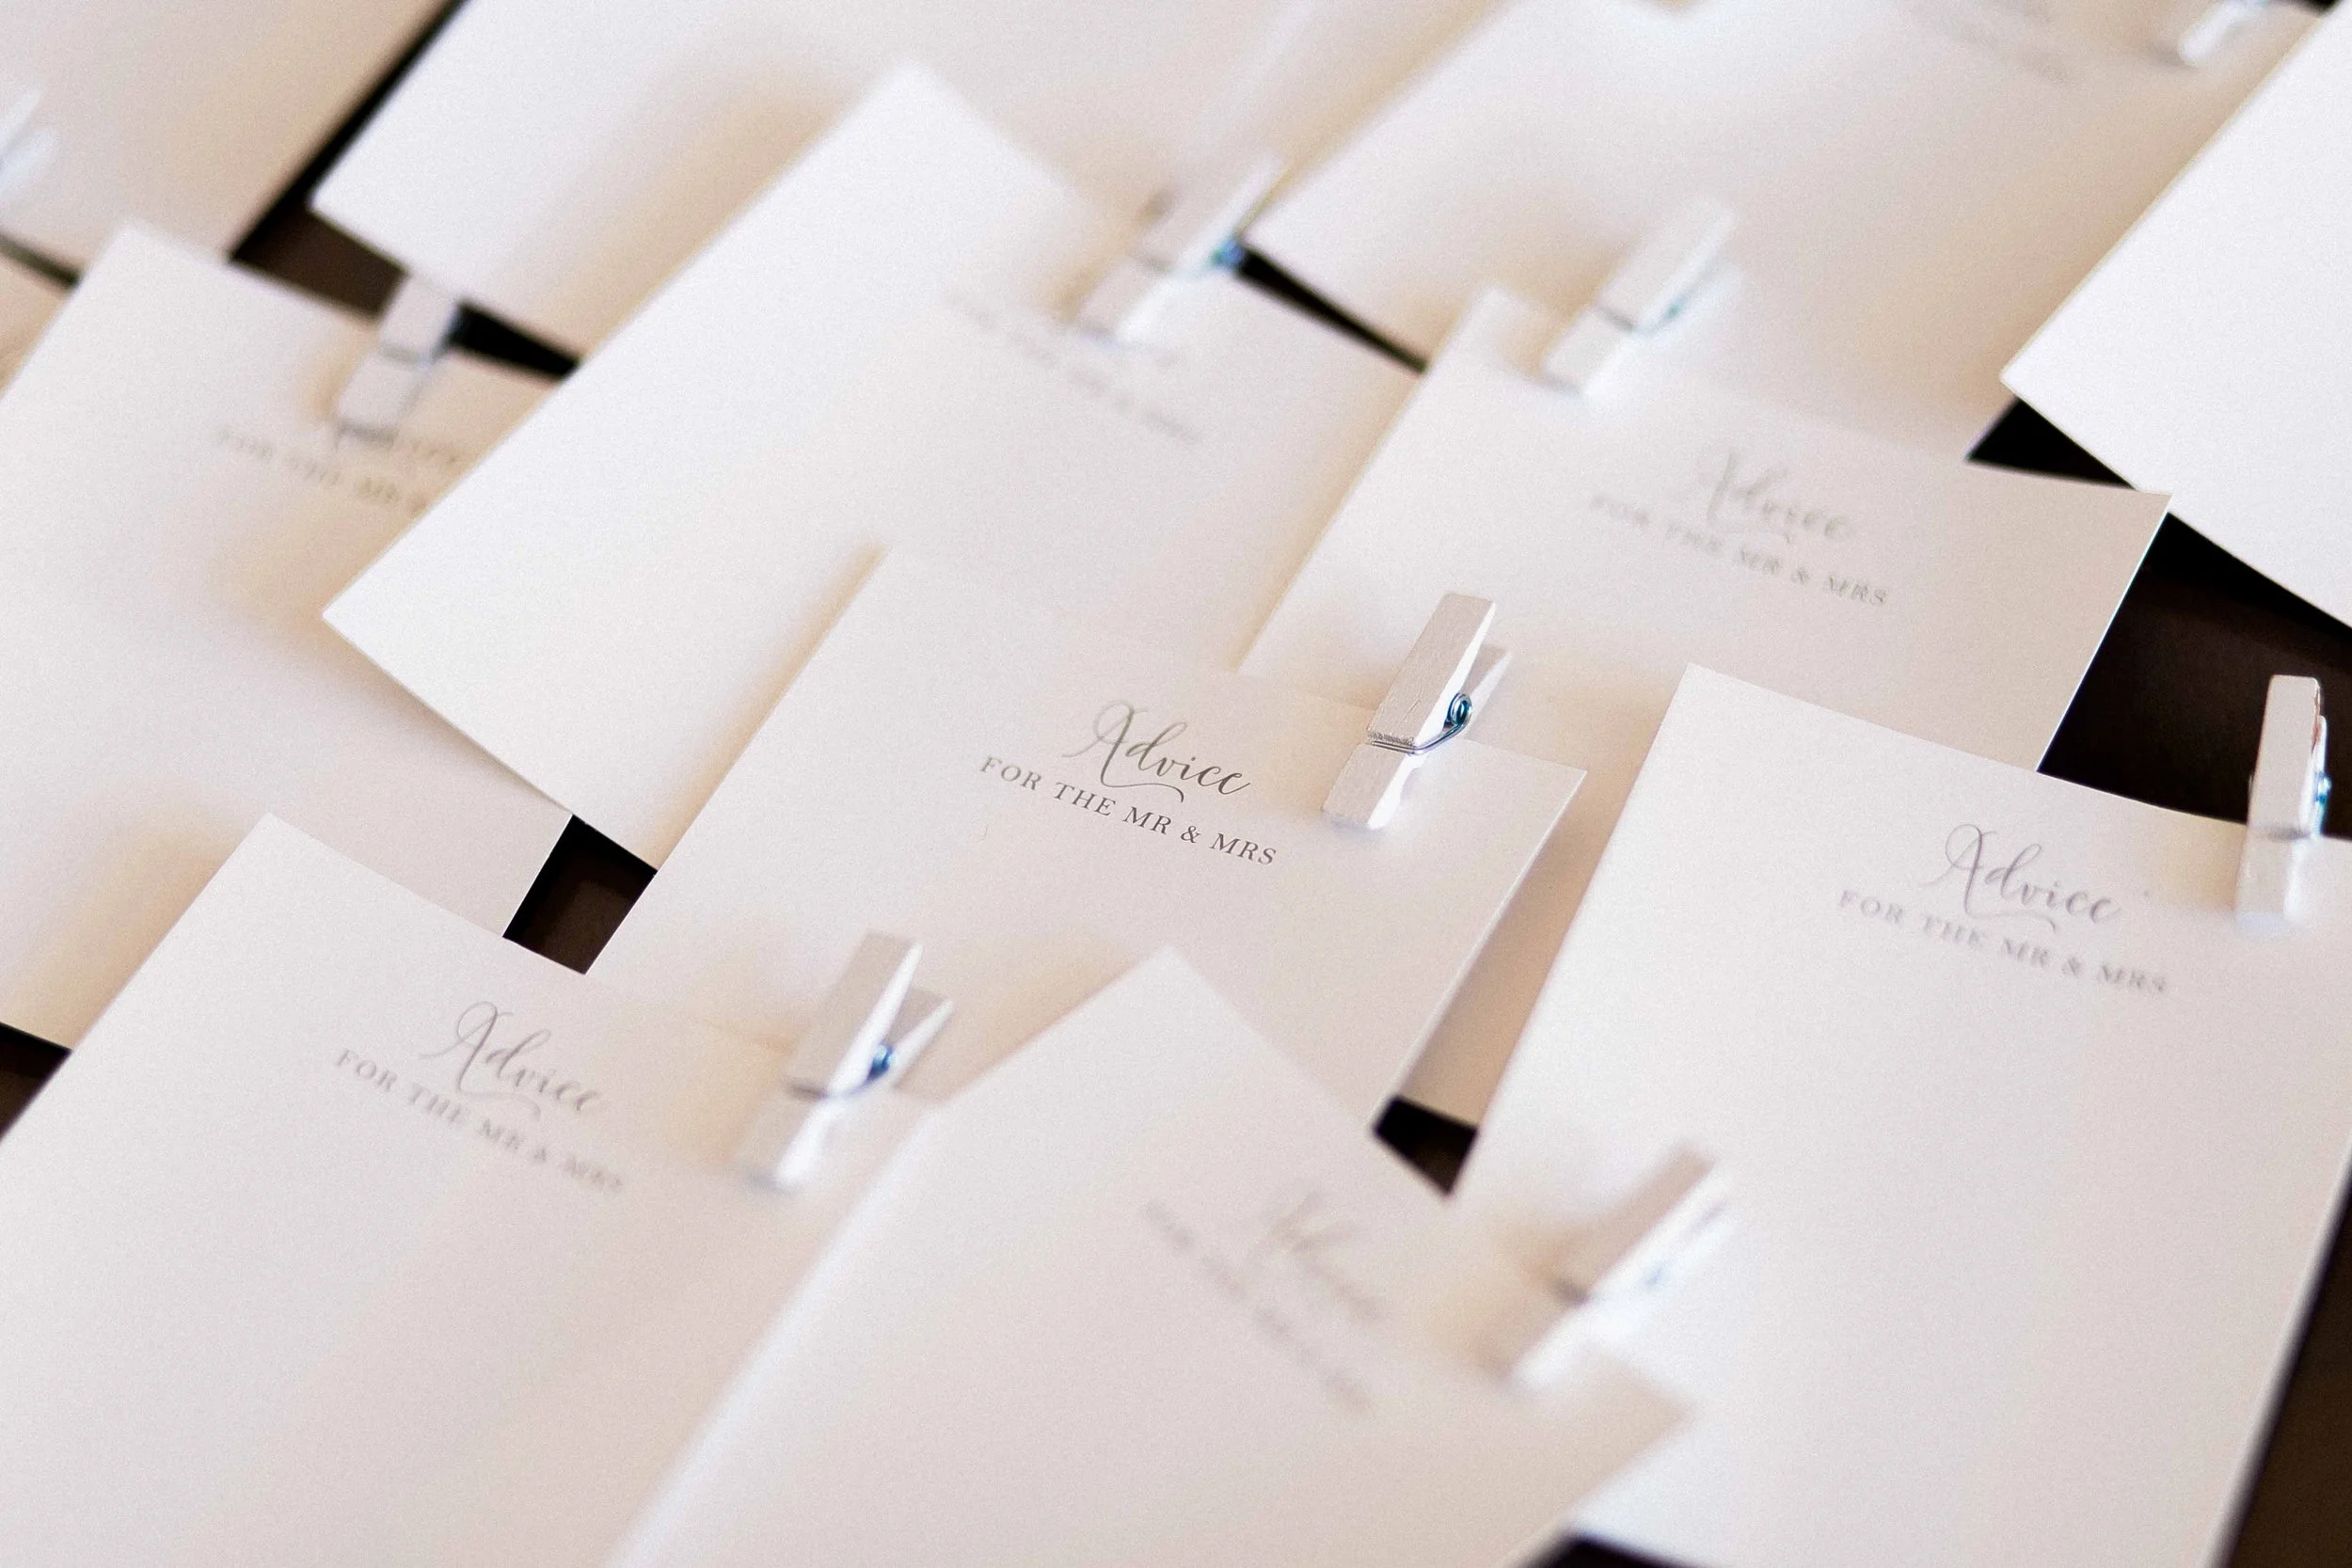 Advice
FOR THE MR & MRS
Advice
FOR THE MR & MRS
Advice
FOR THE MR & MRS
Advice
FOR THE MR & MRS
FOR THE MR &